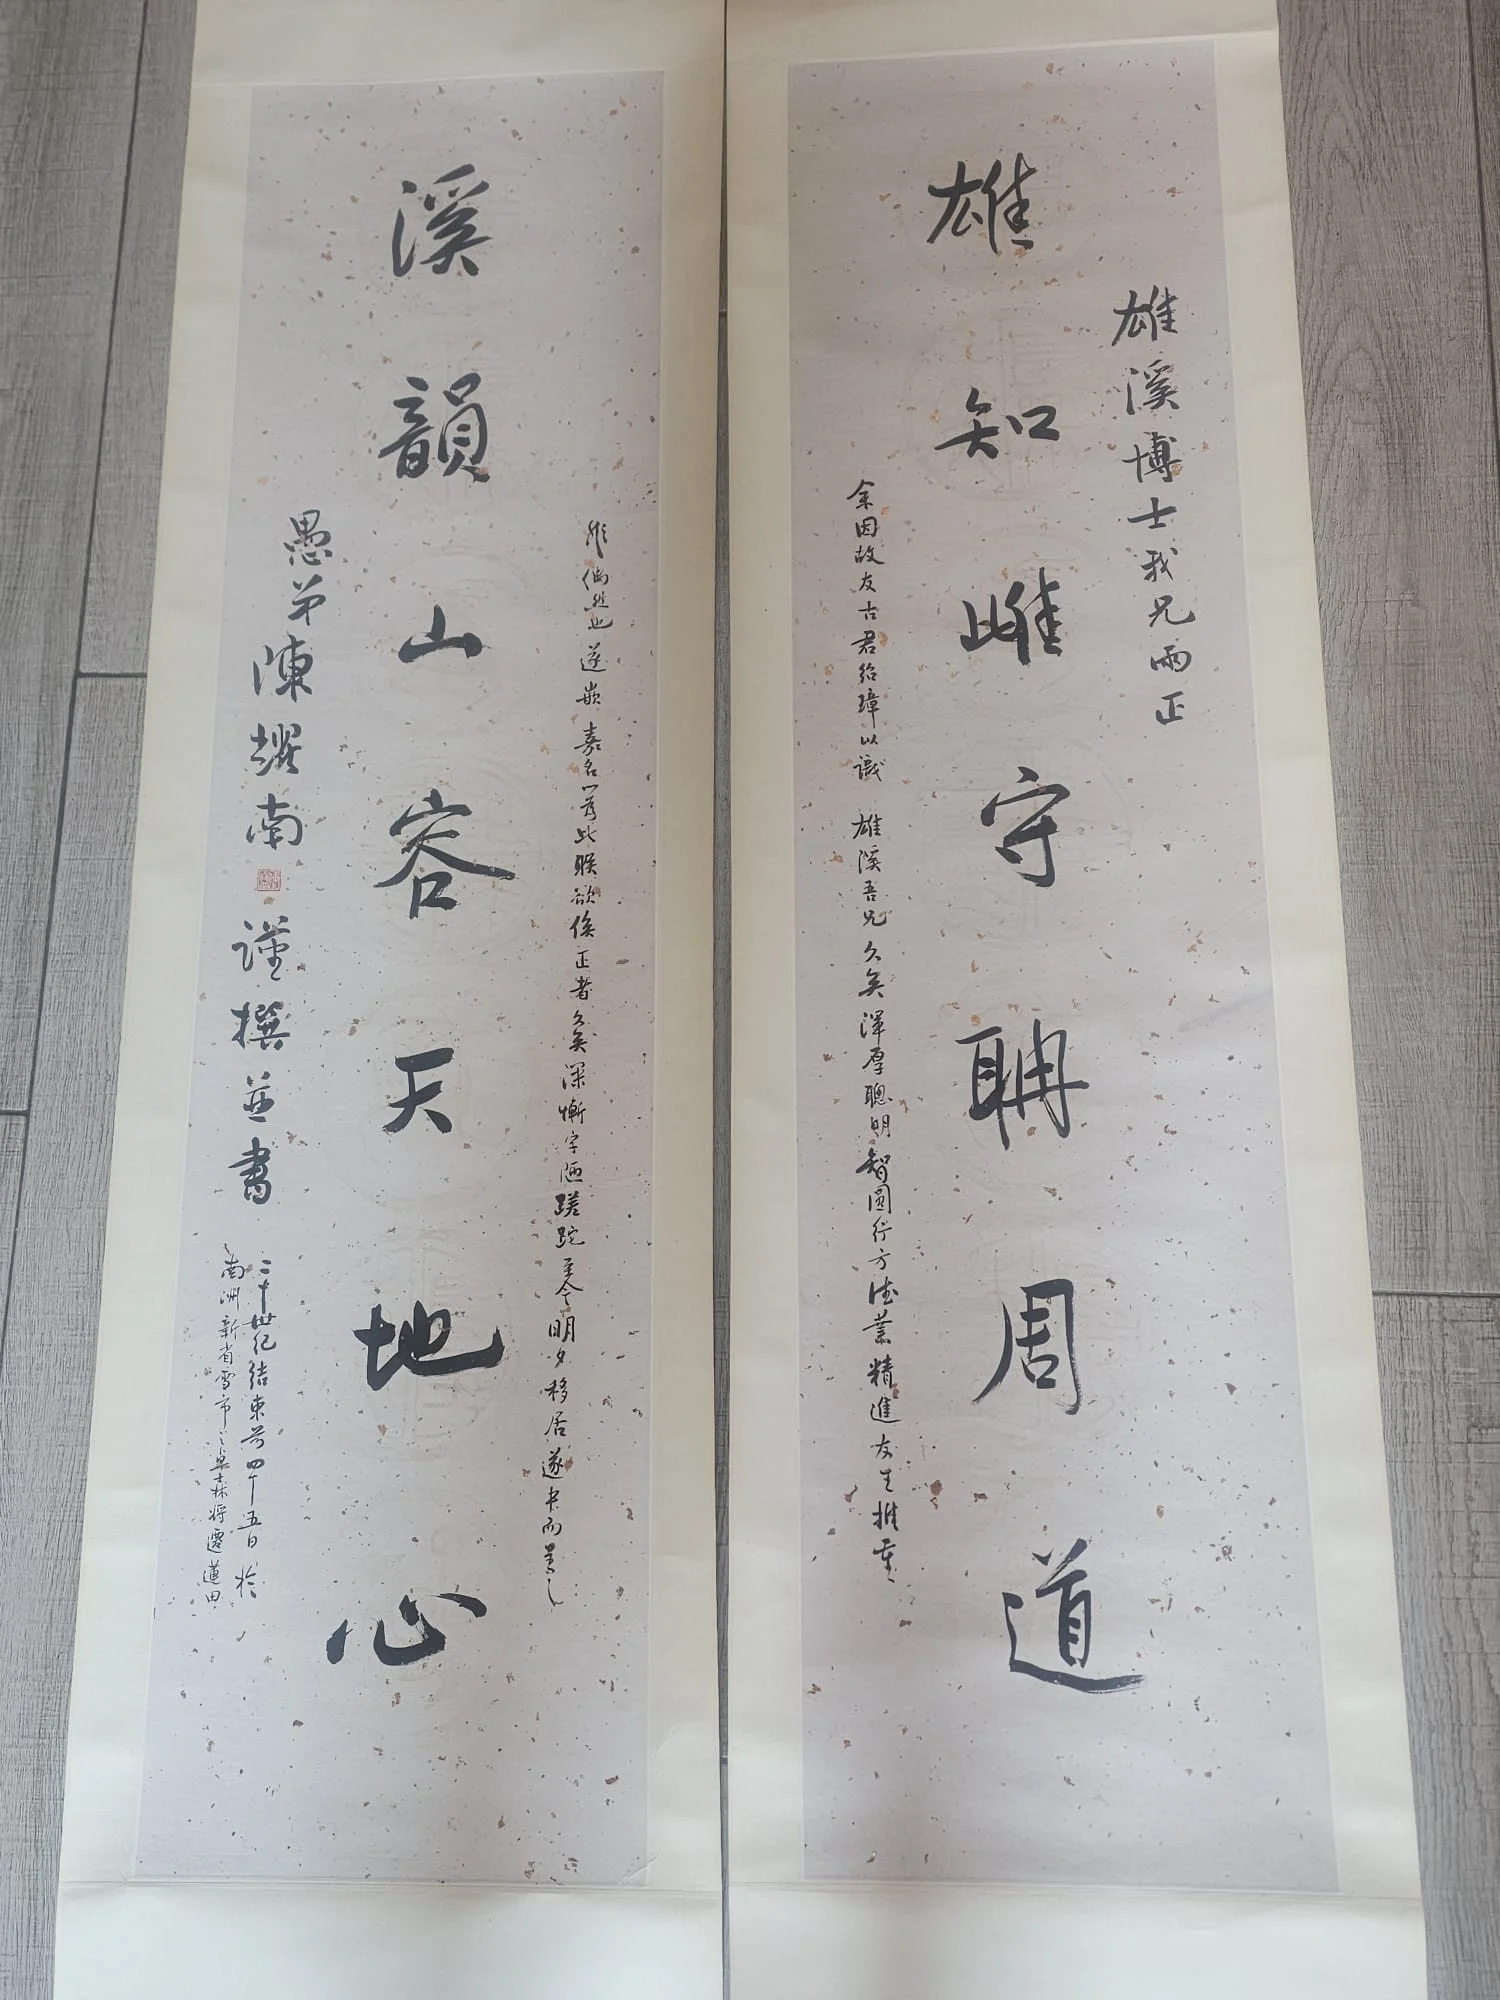 雄溪博士我兄兩正
雄知雌守聃周道
余因故友古君紹璋以識 雄溪吾兄久矣渾厚聰明智圓行方德業精進友生推重
非偶然也遂嵌嘉名為此聯欲俟正者久矣深慚字陋蹉跎至今明夕移居遂書而奉之
溪韻山容天地心
愚弟陳耀南謹撰並書
二十世紀結束前四十五日於
南洲新省雪市之臬士林將遷蓮田